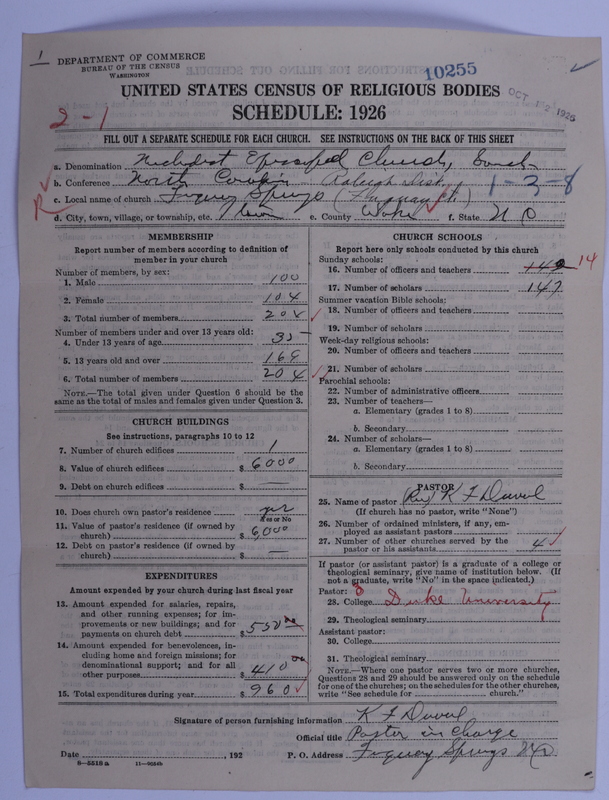 1
DEPARTMENT OF COMMERCE
BUREAU OF THE CENSUS
WASHINGTON
10255
OCT 12 1926
UNITED STATES CENSUS OF RELIGIOUS BODIES
SCHEDULE: 1926
2-1
FILL OUT A SEPARATE SCHEDULE FOR EACH CHURCH. SEE INSTRUCTIONS ON THE BACK OF THIS SHEET
a. Denomination Methodist Episcopal Church, South
b. Conference North Carolina Raleigh Dist. 1-3-8
c. Local name of church Fuquay Springs (Fuquay St.)
R
d. City, town, village, or township, etc. Town e. County Wake f. State N C
MEMBERSHIP
Report number of members according to definition of member in your church
Number of members, by sex:
1. Male 100
2. Female 104
3. Total number of members 204
Number of members under and over 13 years old:
4. Under 13 years of age 35
5. 13 years old and over 169
6. Total number of members 204
NOTE.—The total given under Question 6 should be the same as the total of males and females given under Question 3.
CHURCH BUILDINGS
See instructions, paragraphs 10 to 12
7. Number of church edifices 1
8. Value of church edifices $ 6000
9. Debt on church edifices $ —
10. Does church own pastor's residence yes
Yes or No
11. Value of pastor's residence (if owned by church) $ 6,000
12. Debt on pastor's residence (if owned by church) $ —
EXPENDITURES
Amount expended by your church during last fiscal year
13. Amount expended for salaries, repairs, and other running expenses; for improvements or new buildings; and for payments on church debt $ 550 00
14. Amount expended for benevolences, including home and foreign missions; for denominational support; and for all other purposes $ 410 00
15. Total expenditures during year $ 960
CHURCH SCHOOLS
Report here only schools conducted by this church
Sunday schools:
16. Number of officers and teachers 14
17. Number of scholars 147
Summer vacation Bible schools:
18. Number of officers and teachers
19. Number of scholars
Week-day religious schools:
20. Number of officers and teachers
21. Number of scholars
Parochial schools:
22. Number of administrative officers
23. Number of teachers—
a. Elementary (grades 1 to 8)
b. Secondary
24. Number of scholars—
a. Elementary (grades 1 to 8)
b. Secondary
PASTOR
25. Name of pastor (Rev) K F Duval
(If church has no pastor, write "None")
26. Number of ordained ministers, if any, employed as assistant pastors
27. Number of other churches served by the pastor or his assistants 4
If pastor (or assistant pastor) is a graduate of a college or theological seminary, give name of institution below. (If not a graduate, write "No" in the space indicated.)
Pastor: 3
28. College Duke University
29. Theological seminary
Assistant pastor:
30. College
31. Theological seminary
NOTE.—Where one pastor serves two or more churches, Questions 28 and 29 should be answered only on the schedule for one of the churches; on the schedules for the other churches, write "See schedule for church."
Signature of person furnishing information K F Duval
Official title Pastor in Charge
Date , 192 P. O. Address Fuquay Springs N C
8—5518 a 11—9024b